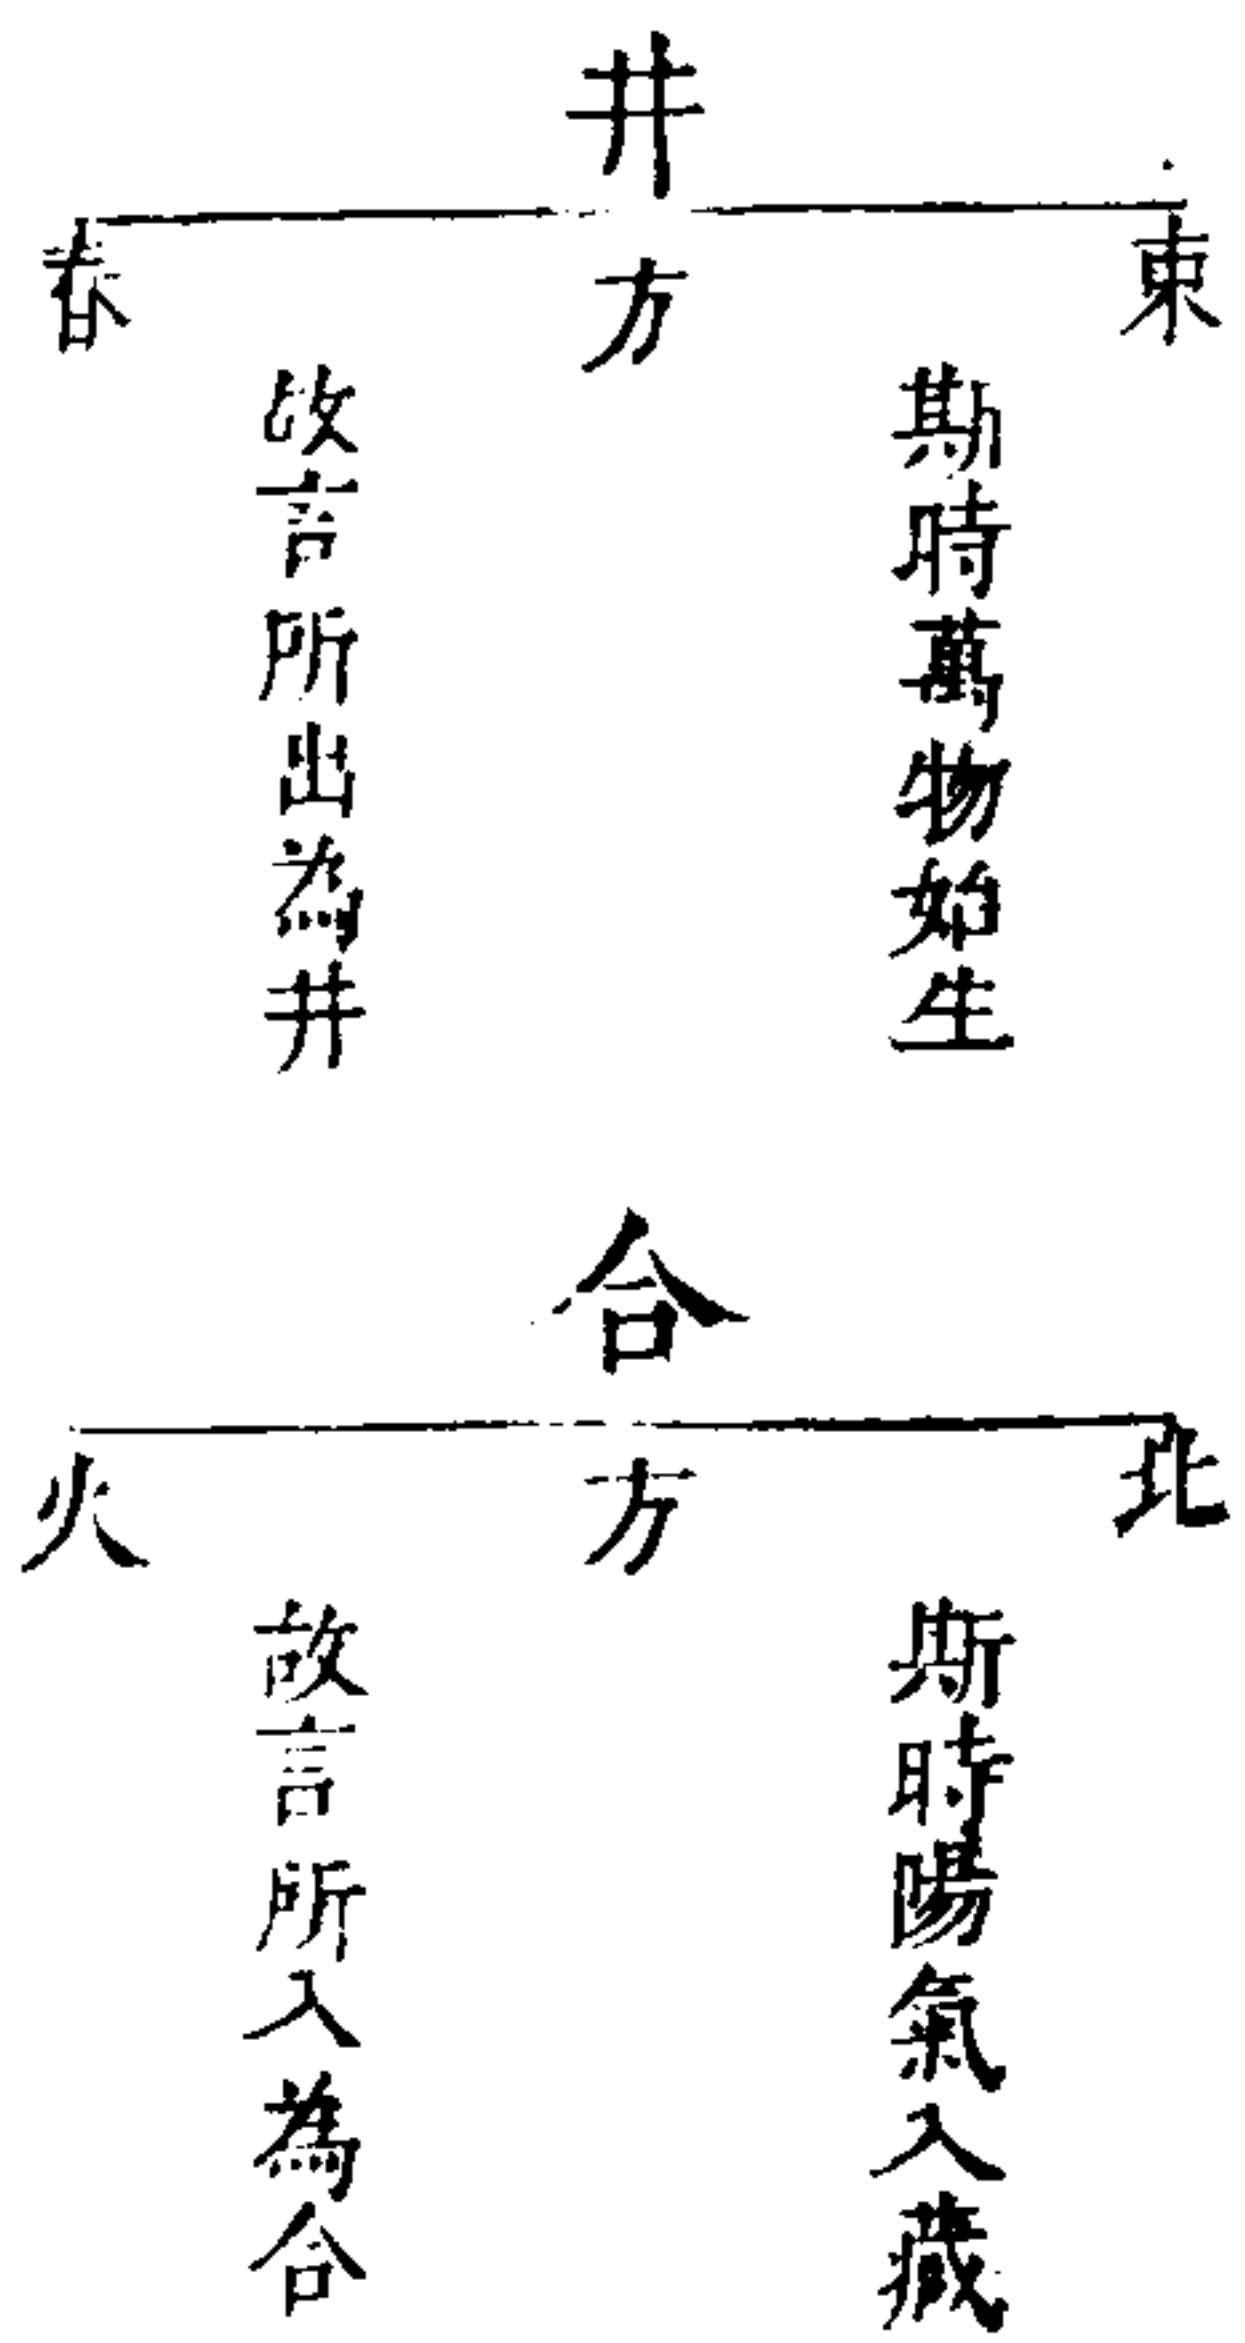 井
東方春
斯時萬物始生
故言所出為井
合
北方火
斯時陽氣入藏
故言所入為合